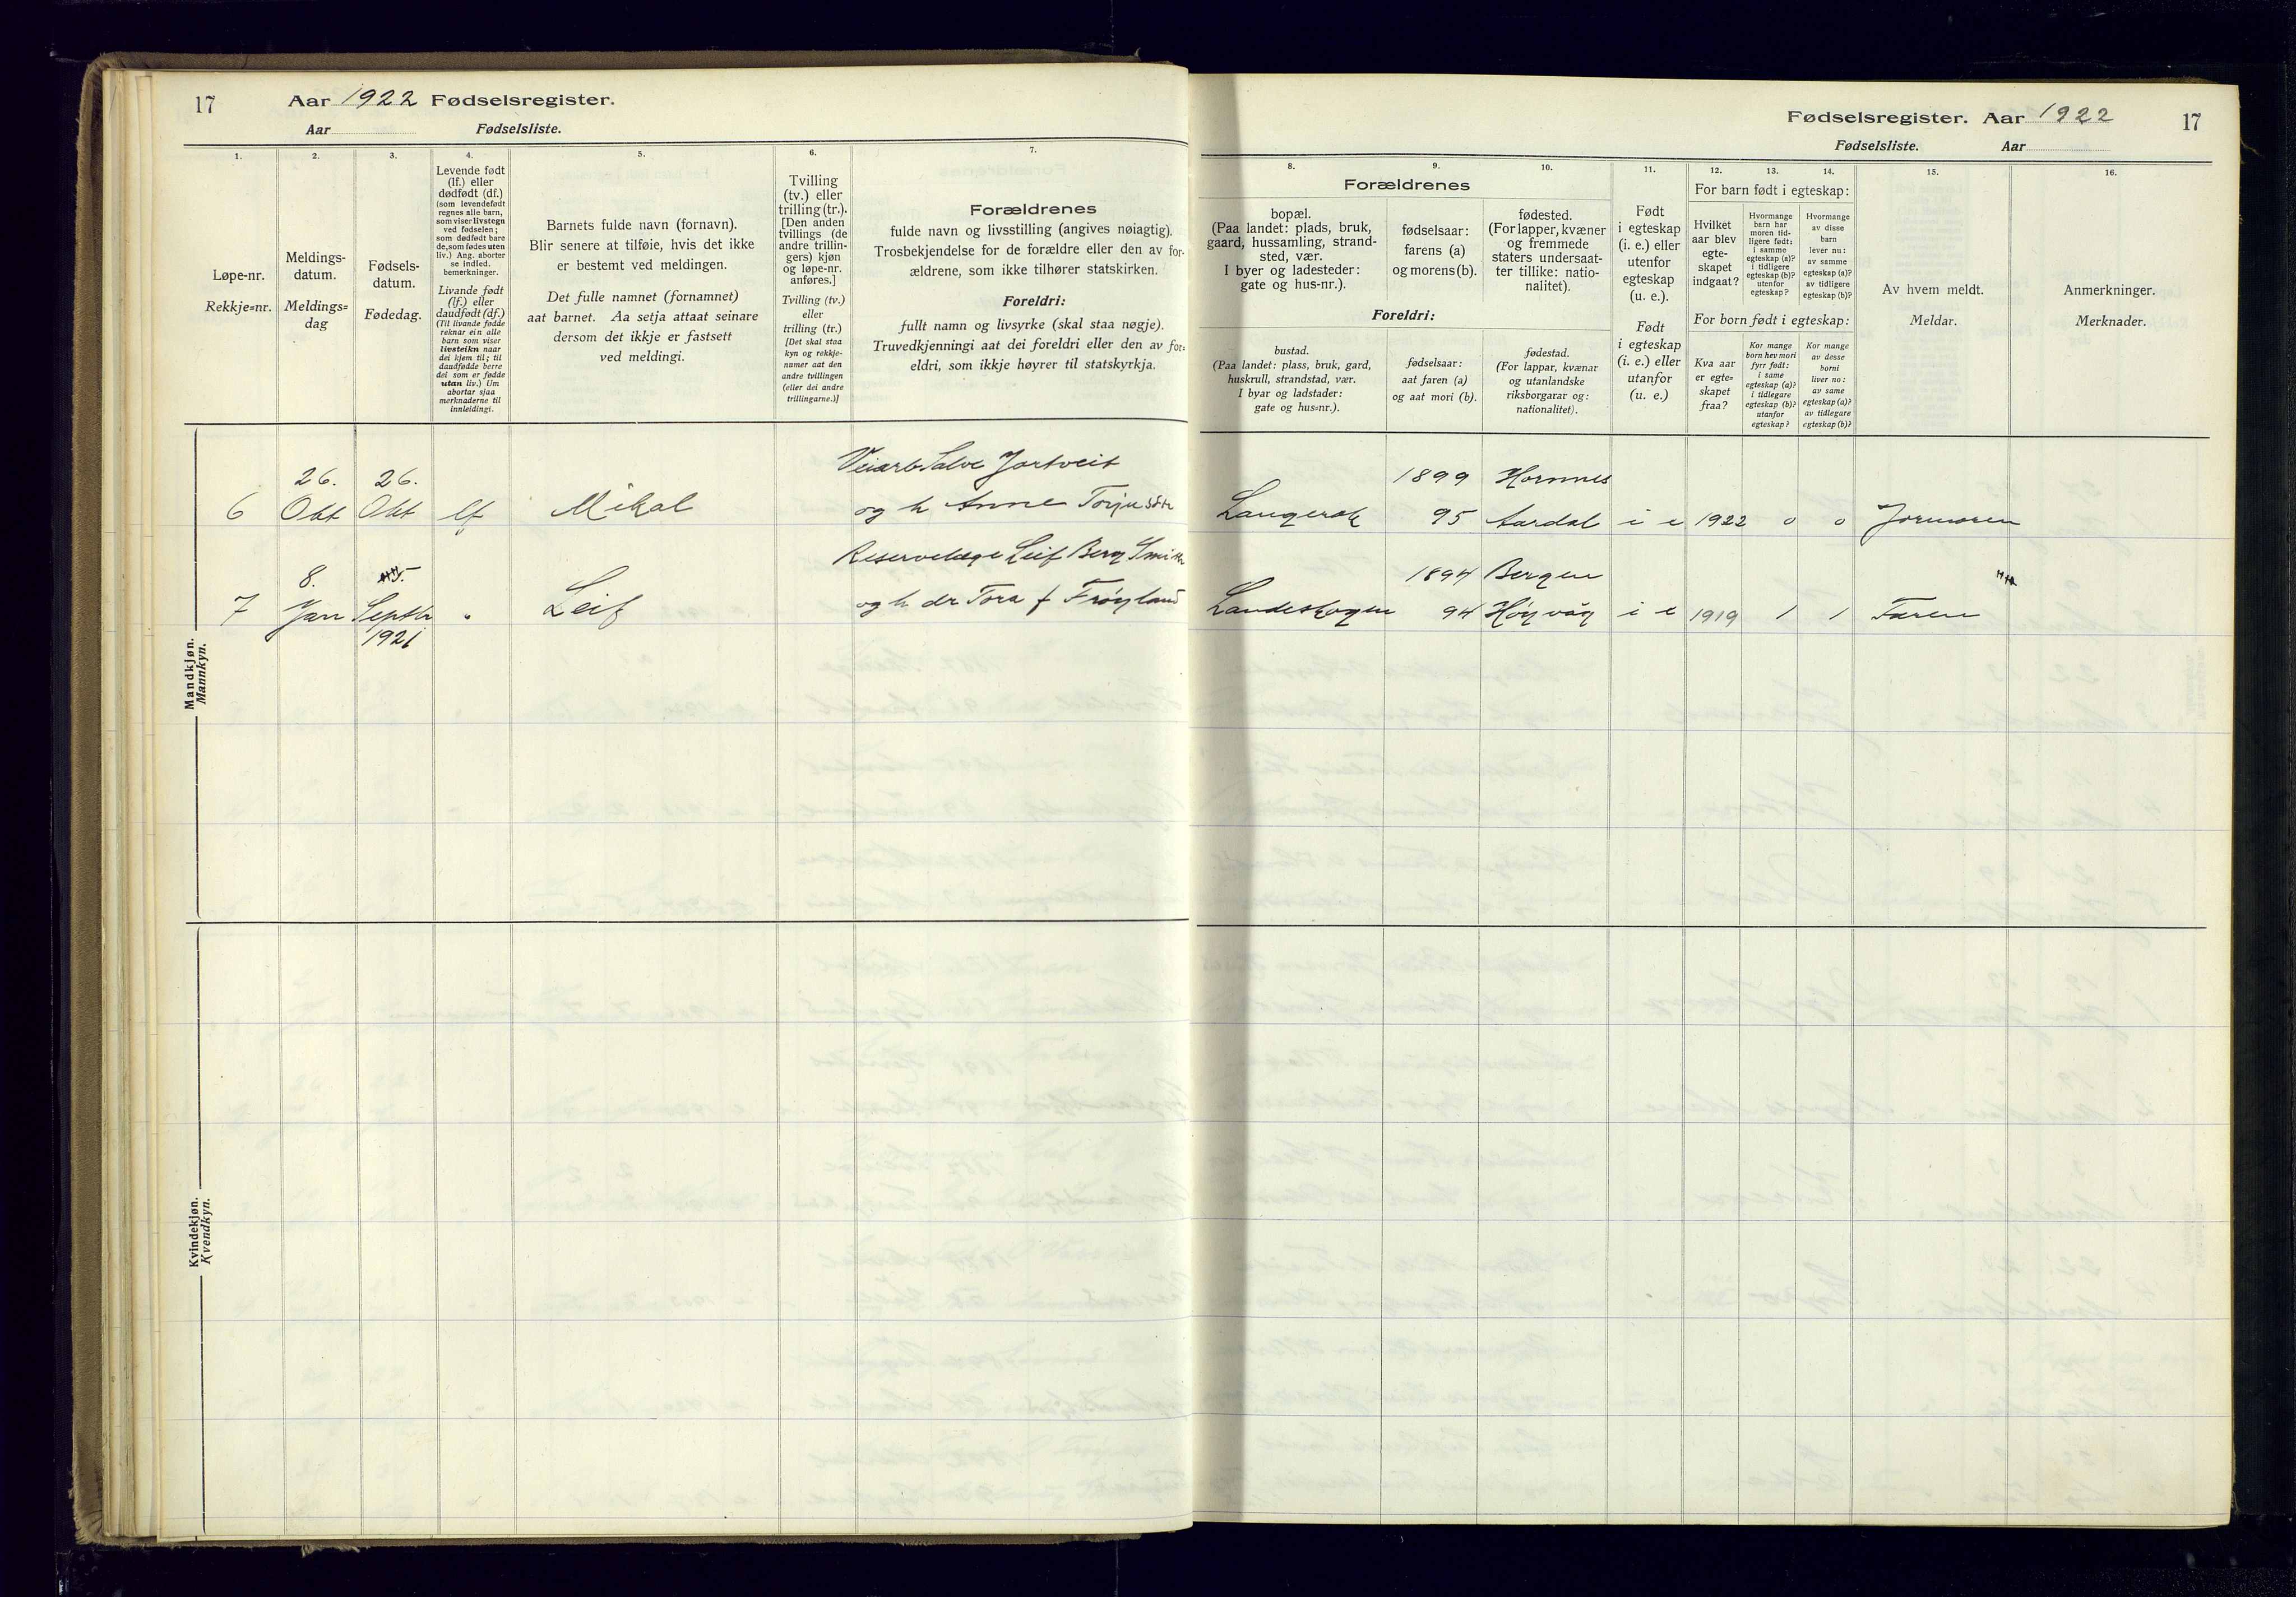 17 Aar 1922 Fødselsregister.
Aar Fødselsliste.
1. 2. 3. 4. 5. 6. 7.
Løpe-nr.
Rekkje=nr.
Meldings-
datum.
Meldings=
dag
Fødsels-
datum.
Fødedag.
Levende født
(lf.) eller
dødfødt (df.)
(som levendefødt
regnes alle barn,
som viser livstegn
ved fødselen;
som dødfødt bare
de, som fødes uten
liv.) Ang. aborter
se indled.
bemerkninger.
Livande født
(lf.) eller
daudfødt (df.)
(Til livande fødde
reknar ein alle
barn som viser
livsteikn naar
dei kjem til; til
daudfødde berre
dei som er fødde
utan liv.) Um
abortar sjaa
merknaderne til
innleidingi.
Barnets fulde navn (fornavn).
Blir senere at tilføie, hvis det ikke
er bestemt ved meldingen.
Det fulle namnet (fornamnet)
aat barnet. Aa setja attaat seinare
dersom det ikkje er fastsett
ved meldingi.
Tvilling
(tv.) eller
trilling (tr.).
[Den anden
tvillings (de
andre trillin-
gers) kjøn
og løpe-nr.
anføres.]
Tvilling (tv.)
eller
trilling (tr.)
[Det skal staa
kyn og rekkje-
numer aat den
andre tvillingen
(eller dei andre
trillingarne.)]
Forældrenes
fulde navn og livsstilling (angives nøiagtig).
Trosbekjendelse for de forældre eller den av for-
ældrene, som ikke tilhører statskirken.
Foreldri:
fullt namn og livsyrke (skal staa nøgje).
Truvedkjenningi aat dei foreldri eller den av for=
eldri, som ikkje høyrer til statskyrkja.
Mandkjøn.
Mannkyn.
Veiarb Salve Jortveit
26. 26.
6 Okt Okt lf Mikal og h Anne Torjusdtr
Reservelæge Leif Berg Smith
8. 5.
7 Jan Septbr " Leif og h dr Tora f Frøyland
1921
Kvindekjøn.
Kvendkyn.
Fødselsregister. Aar 1922 17
Fødselsliste. Aar
8. 9. 10. 11. 12. 13. 14. 15. 16.
Forældrenes
bopæl.
(Paa landet: plads, bruk,
gaard, hussamling, strand-
sted, vær.
I byer og ladesteder:
gate og hus-nr.).
fødselsaar:
farens (a)
og morens (b).
fødested.
(For lapper, kvæner
og fremmede
staters undersaat-
ter tillike: natio-
nalitet).
Foreldri:
bustad.
(Paa landet: plass, bruk, gard,
huskrull, strandstad, vær.
I byar og ladstader:
gate og hus=nr.).
fødselsaar:
aat faren (a)
og aat mori (b).
fødestad.
(For lappar, kvænar
og utanlandske
riksborgarar og:
nationalitet).
Født
i egteskap
(i. e.) eller
utenfor
egteskap
(u. e.).
Født
i egteskap
(i. e.) eller
utanfor
(u. e.)
For barn født i egteskap:
Hvilket
aar blev
egte-
skapet
indgaat?
Hvormange
barn har
moren tid-
ligere født:
i samme
egteskap (a)?
i tidligere
egteskap (b)?
utenfor
egteskap?
Hvormange
av disse
barn
lever nu:
av samme
egteskap (a)?
av tidligere
egteskap (b)?
For born født i egteskap:
Kva aar
er egte=
skapet
fraa?
Kor mange
born hev mori
fyrr født:
i same
egteskap (a)?
i tidlegare
egteskap (b)?
utanfor
egteskap?
Kor mange
av desse
borni
liver no:
av same
egteskap (a)?
av tidlegare
egteskap (b)?
Av hvem meldt.
Meldar.
Anmerkninger.
Merknader.
1899 Hornnes
Langerak 95 Aardal i e 1922 0 0 Jormoren
1894 Bergen
Landeskogen 94 Høyvåg i e 1919 1 1 Faren